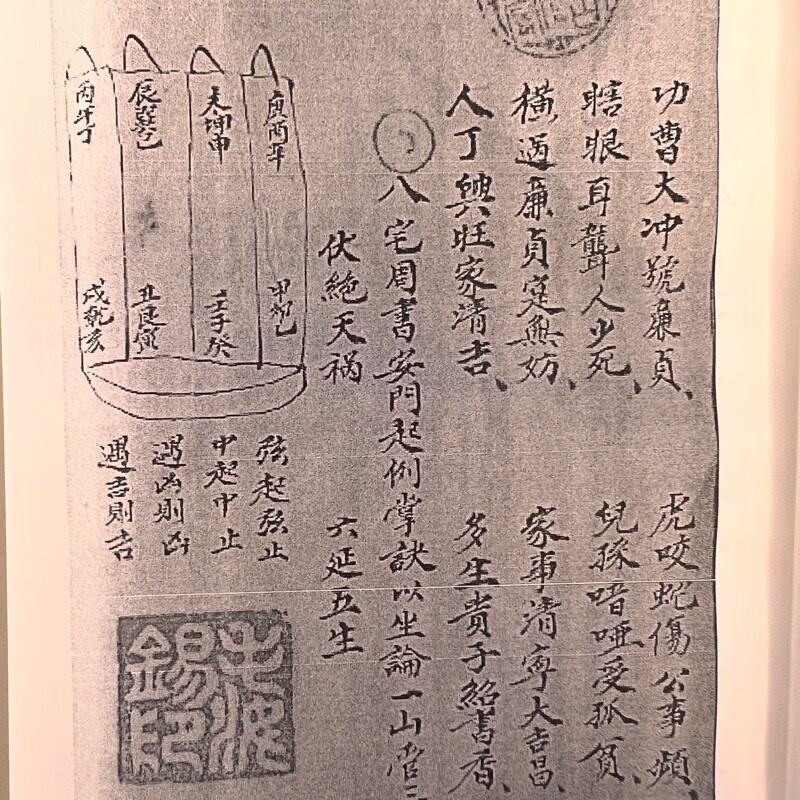 功曹大冲號廉貞、
虎咬蛇傷公事頻、
瞎眼耳聾人少死、
兒孫喑啞受孤貧、
橫過廉貞寔無妨、
家事清寧大吉昌、
人丁興旺家清吉、
多生貴子紹書香、
八宅周書安門起例掌訣以坐論一山管三
伏絶天禍
六延五生
庚酉辛
未坤申
辰巽巳
丙午丁
壬子癸
丑艮寅
戌乾亥
弦起弦止
中起中止
遇凶則凶
遇吉則吉